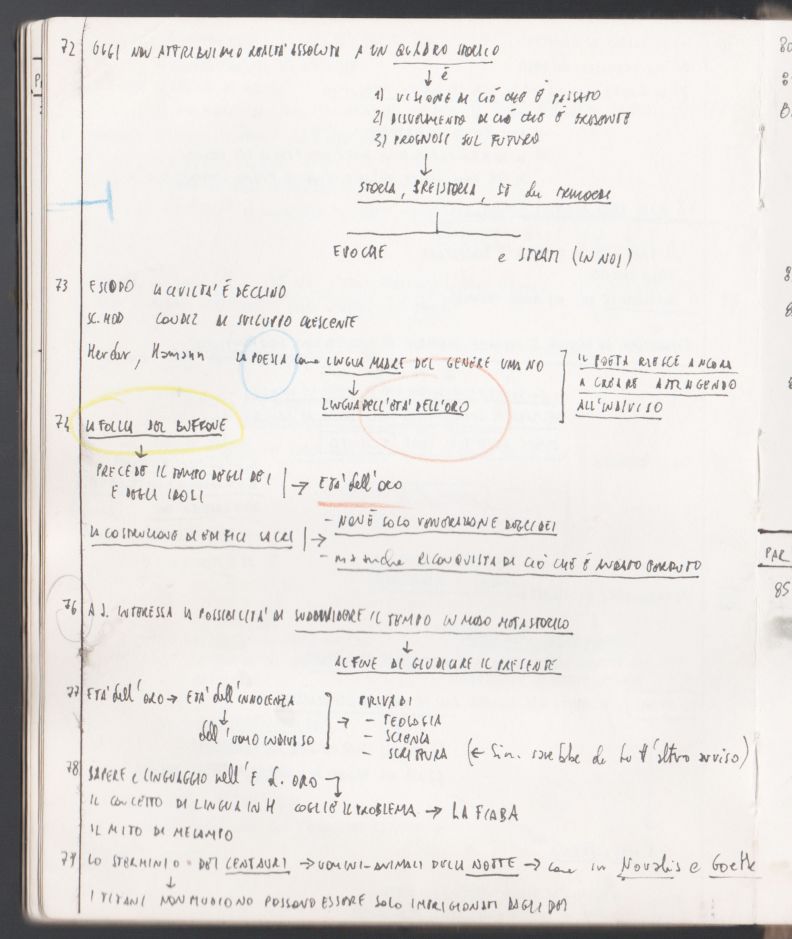 72 OGGI NON ATTRIBUIAMO REALTA' ASSOLUTA A UN QUADRO STORICO
↓ è
1) VISIONE DI CIÒ CHE È PASSATO
2) DISVELAMENTO DI CIÒ CHE È PRESENTE
3) PROGNOSI SUL FUTURO
↓
STORIA, PREISTORIA,
EPOCHE e STRATI (IN NOI)
73 ESIODO LA CIVILTA' È DECLINO
SC. MOD CONDIZ DI SVILUPPO CRESCENTE
Herder, Hamann LA POESIA come LINGUA MADRE DEL GENERE UMANO
IL POETA RIESCE ANCORA
A CREARE ATTINGENDO
ALL'INDIVISO
↓
LINGUA DELL'ETA' DELL'ORO
74 LA FOLLIA DEL BUFFONE
↓
PRECEDE IL TEMPO DEGLI DEI
E DEGLI IDOLI → ETA' dell'ORO
LA COSTRUZIONE DI EDIFICI SACRI →
- NON È SOLO VENERAZIONE DEGLI DEI
- ma anche RICONQUISTA DI CIÒ CHE È ANDATO PERDUTO
76 A J. INTERESSA LA POSSIBILITA' DI SUDDIVIDERE IL TEMPO IN MODO METASTORICO
↓
AL FINE DI GIUDICARE IL PRESENTE
77 ETA' dell'ORO → ETA' dell'INNOCENZA
↓
dell'UOMO INDIVISO
→ PRIVA DI
- TEOLOGIA
- SCIENZA
- SCRITTURA (← Sin. sarebbe di tutt'altro avviso)
78 SAPERE e LINGUAGGIO nell'E d. ORO
IL CONCETTO DI LINGUA IN H COGLIE IL PROBLEMA → LA FIABA
IL MITO DI MELAMPO
79 LO STERMINIO DEI CENTAURI → UOMINI-ANIMALI DELLA NOTTE → come in Novalis e Goethe
↓
I TITANI NON MUOIONO POSSONO ESSERE SOLO IMPRIGIONATI DAGLI DEI
PAR
85